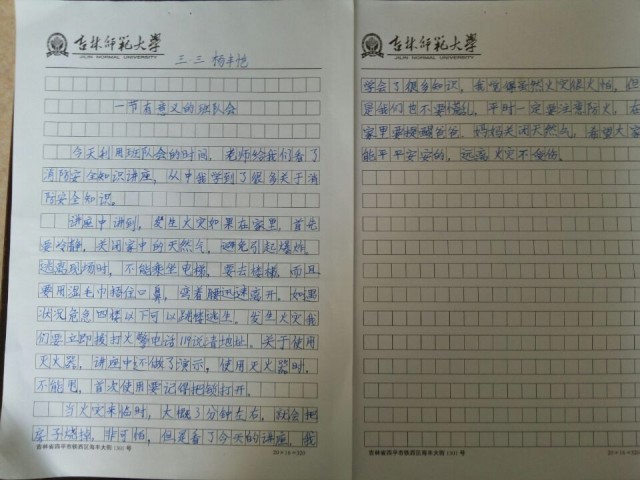 吉林师范大学
JILIN NORMAL UNIVERSITY
三.三 杨丰恺
一节有意义的班队会
今天利用班队会的时间，老师给我们看了
消防安全知识讲座，从中我学到了很多关于消
防安全知识。
讲座中讲到，发生火灾如果在家里，首先
要冷静，关闭家中的天然气，避免引起爆炸。
逃离现场时，不能乘坐电梯，要去楼梯，而且
要用湿毛巾捂住口鼻，弯着腰迅速离开。如果
状况危急四楼以下可以跳楼逃生。发生火灾我
们要立即拨打火警电话119说清地址。关于使用
灭火器，讲座中还做了演示，使用灭火器时，
不能甩，首次使用要记得把锁打开。
当火灾来临时，大概3分钟左右，就会把
房子燃掉，非可怕，但是看了今天的讲座，我
吉林省四平市铁西区海丰大街1301号
20×16=320
吉林师范大学
JILIN NORMAL UNIVERSITY
学会了很多知识，我觉得虽然火灾很可怕，但
是我们也不要慌乱，平时一定要注意防火，在
家里要提醒爸爸、妈妈关闭天然气，希望大家
能平平安安的，远离火灾不受伤。
吉林省四平市铁西区海丰大街1301号
20×16=320